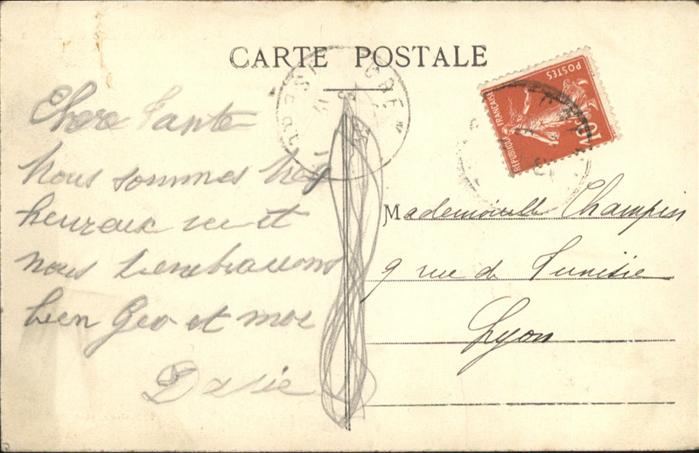 CARTE POSTALE
POSTES
10
REPUBLIQUE FRANÇAISE
Chere Tante
Nous sommes
heureux et
nous
bien Geo et moi
Mademoiselle Champin
9 rue de Tunisie
Lyon